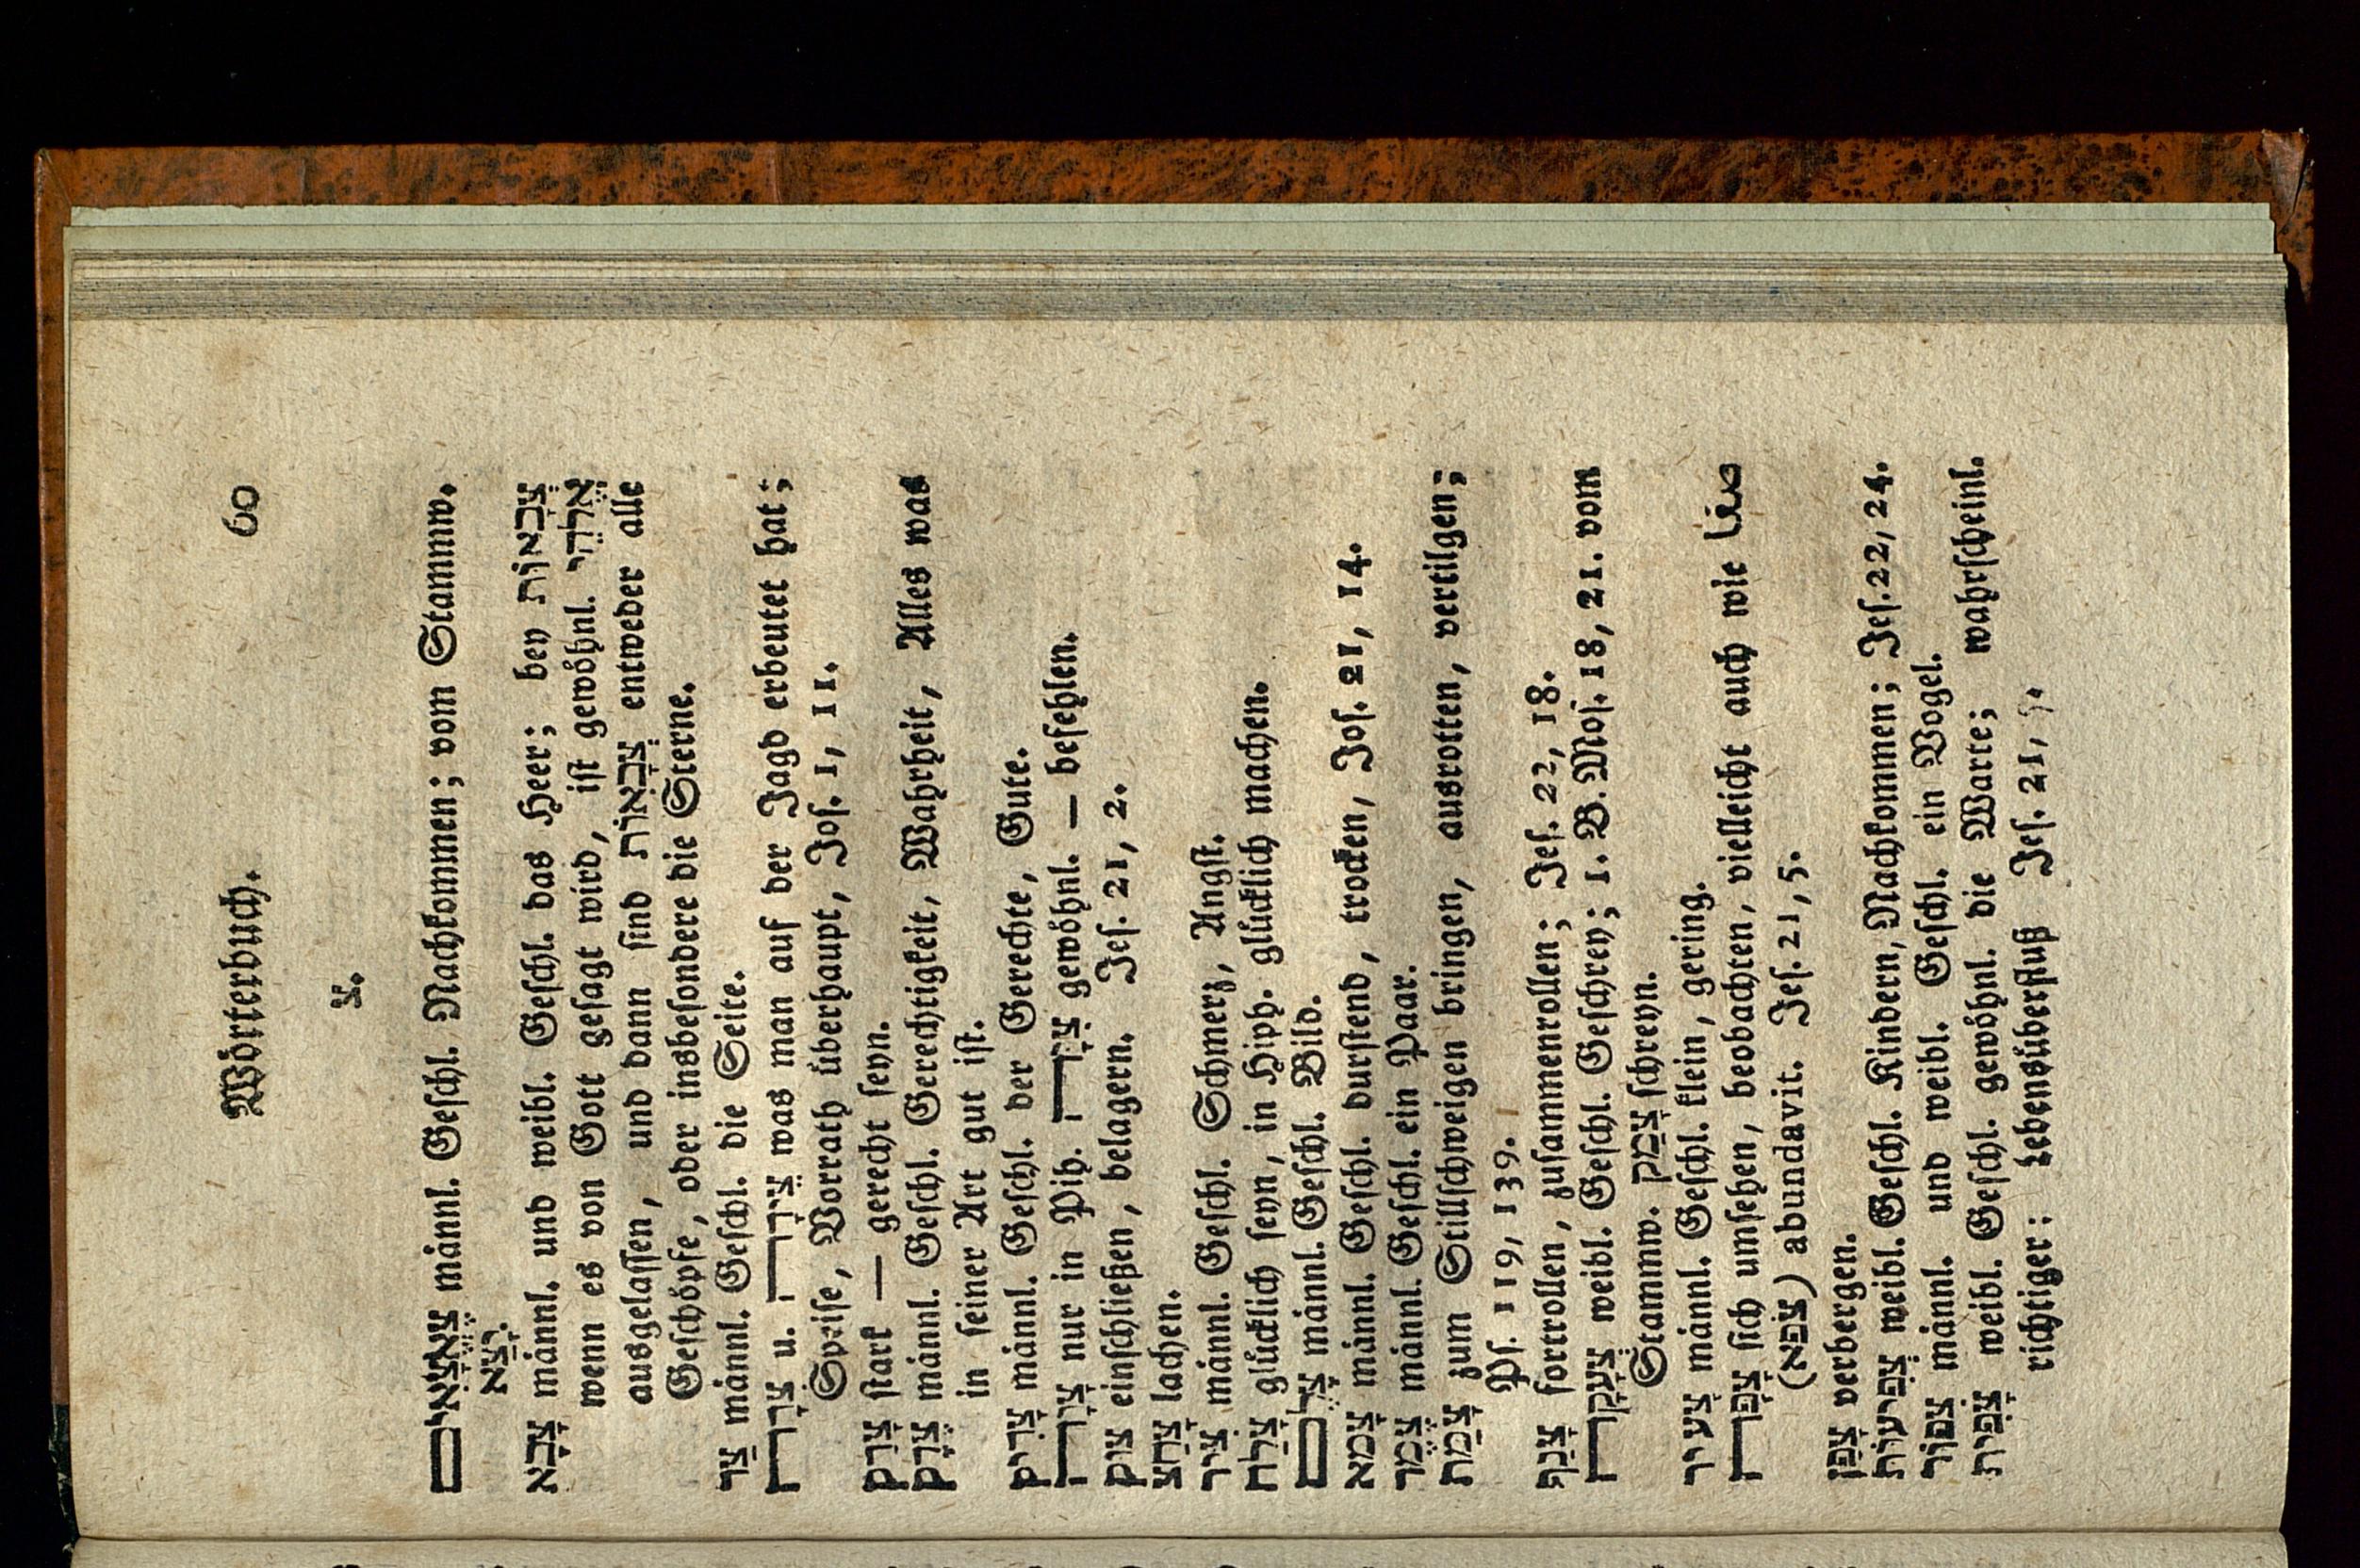 Wörterbuch. 60
צ.
צֶאֱצָאִים männl. Geschl. Nachkommen; vom Stammw.
יָצָא.
צָבָא männl. und weibl. Geschl. das Heer; bey צְבָאוֹת
wenn es von Gott gesagt wird, ist gewöhnl. אֱלֹהֵי
ausgelassen, und dann sind צְבָאוֹת entweder alle
Geschöpfe, oder insbesondere die Sterne.
צַד männl. Geschl. die Seite.
צָדָה u. צֵידָה was man auf der Jagd erbeutet hat;
Speise, Vorrath überhaupt, Jos. 1, 11.
צָדַק stark — gerecht seyn.
צֶדֶק männl. Geschl. Gerechtigkeit, Wahrheit, Alles was
in seiner Art gut ist.
צַדִּיק männl. Geschl. der Gerechte, Gute.
צָוָה nur in Pih. צִוָּה gewöhnl. — befehlen.
צוּק einschließen, belagern. Jes. 21, 2.
צָחַק lachen.
צִיר männl. Geschl. Schmerz, Angst.
צָלַח glücklich seyn, in Hiph. glücklich machen.
צֶלֶם männl. Geschl. Bild.
צָמֵא männl. Geschl. durstend, trocken, Jos. 21, 14.
צֶמֶד männl. Geschl. ein Paar.
צָמַת zum Stillschweigen bringen, ausrotten, vertilgen;
Ps. 119, 139.
צָנַף fortrollen, zusammenrollen; Jes. 22, 18.
צְעָקָה weibl. Geschl. Geschrey; 1. B. Mos. 18, 21. vom
Stammw. צָעַק schreyn.
צָעִיר männl. Geschl. klein, gering.
צָפָה sich umsehen, beobachten, vielleicht auch wie صفا
(צפא) abundavit. Jes. 21, 5.
צָפַן verbergen.
צְפִיעוֹת weibl. Geschl. Kindern, Nachkommen; Jes. 22, 24.
צִפּוֹר männl. und weibl. Geschl. ein Vogel.
צָפִית weibl. Geschl. gewöhnl. die Warte; wahrscheinl.
richtiger: Lebensüberfluß Jes. 21, 5.